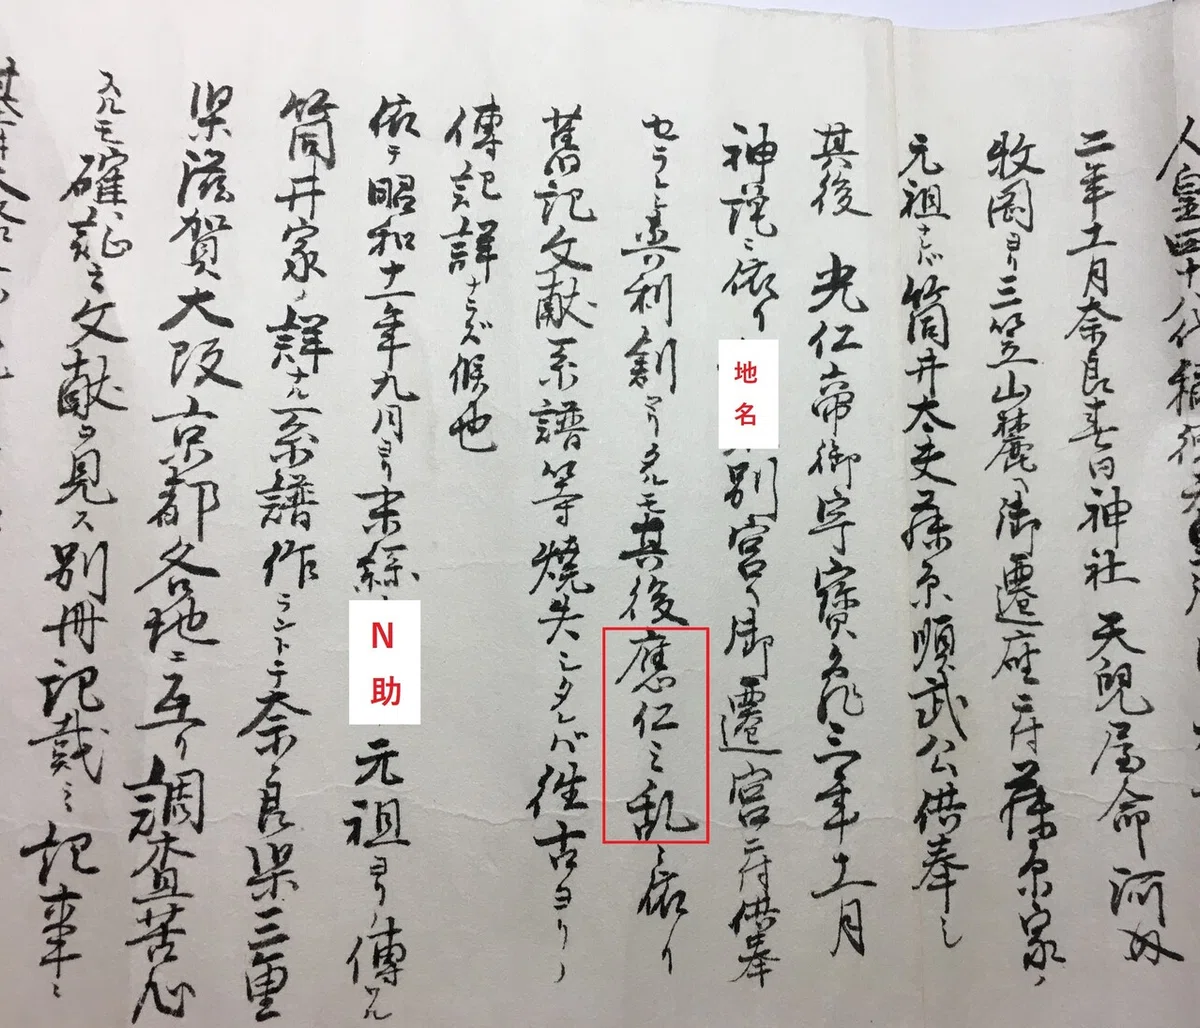 人皇四十八代稱徳
二年十一月奈良春日神社天児屋命河内
牧岡ヨリ三笠山麓ヘ御遷座ニ付藤原家ノ
元祖ナル筒井太夫藤原順武公供奉シ
其後光仁帝御宇寳亀三年十一月
神託ニ依リ 地名 別宮ヘ御遷宮ニ付供奉
セラレ 利創 タルモ其後應仁之乱ニ依リ
舊記文献系譜等焼失シタレバ往古ヨリノ
傳記詳ナラズ候也
依テ昭和十一年九月ヨリ末孫 N助 元祖ヨリノ傳ハル
筒井家ノ詳ナル系譜作ラントテ奈良県三重
県滋賀大阪京都各地ニ亙リ調査苦心
スルモ確証之文献ヲ見ス別冊記載之記事ニ